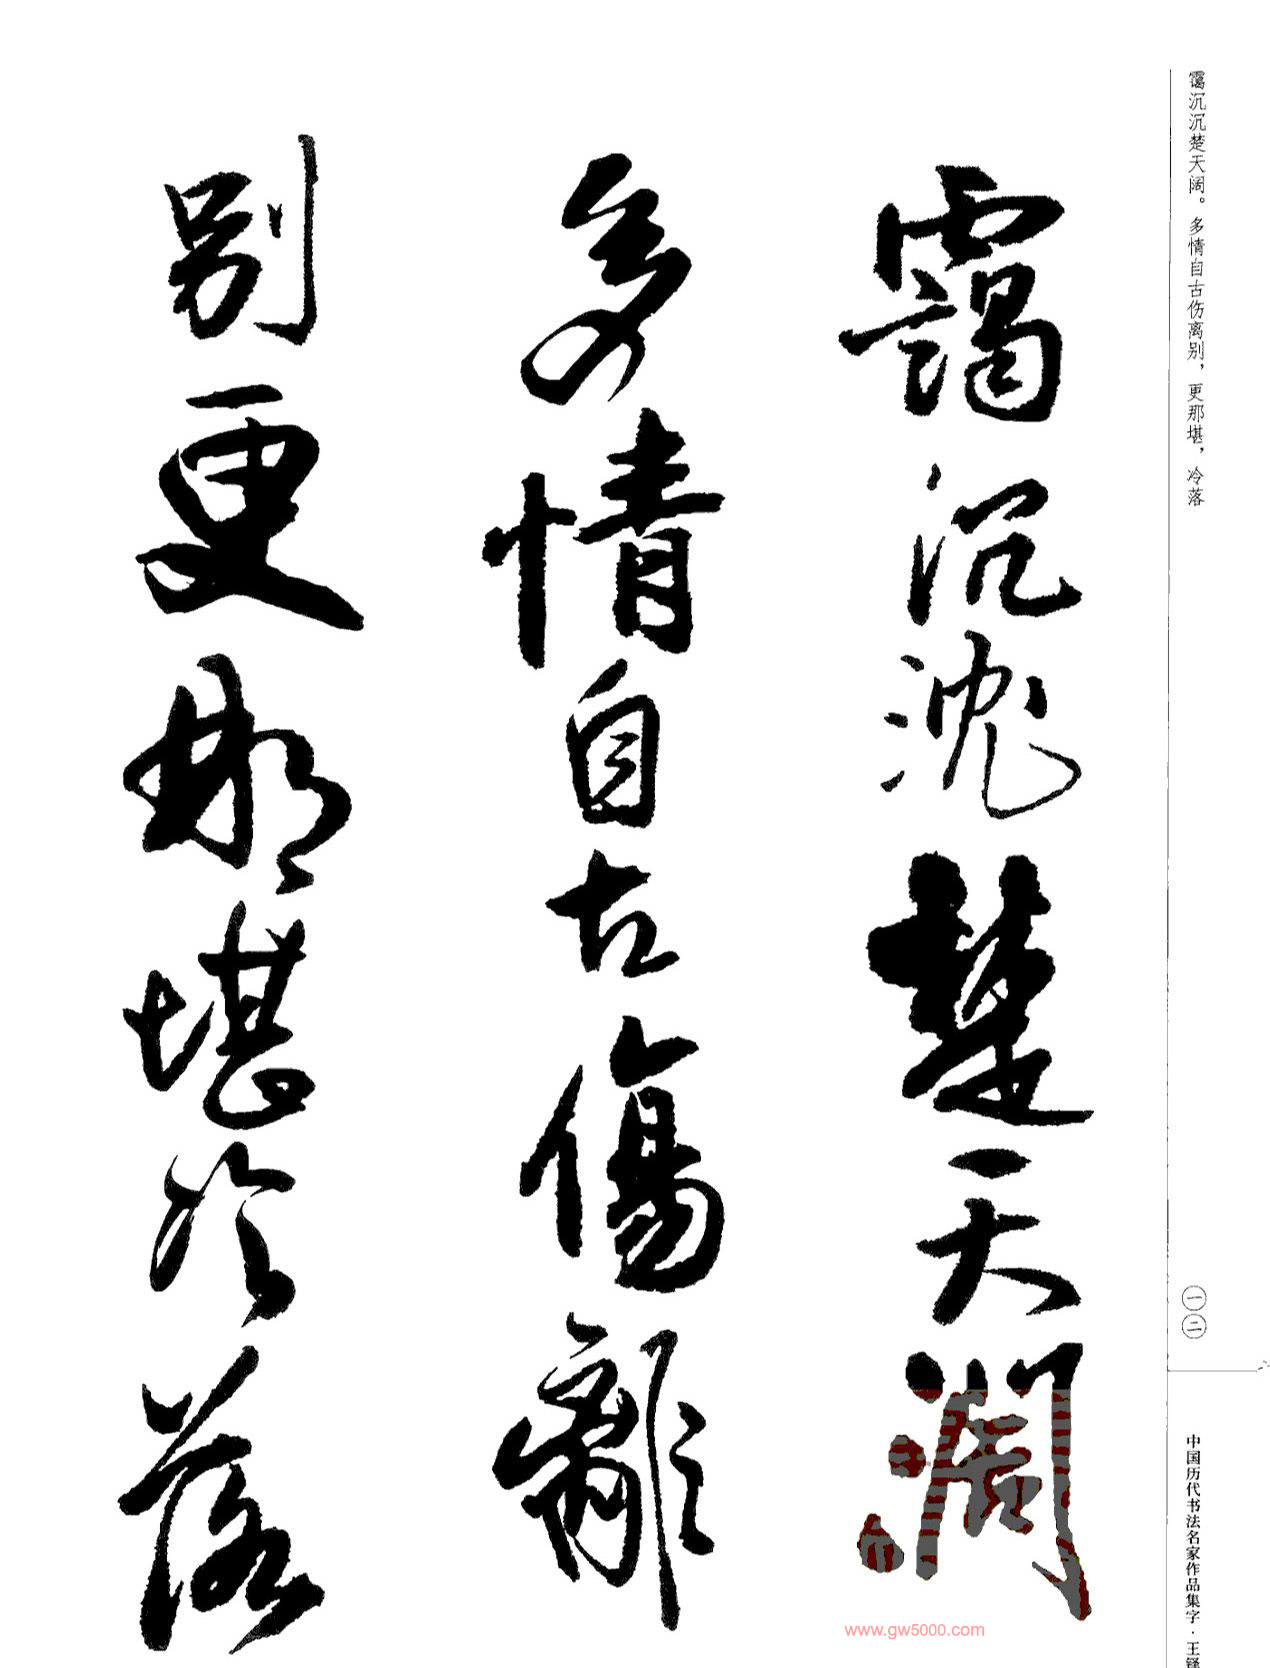 霭沉沉楚天阔。多情自古伤离别，更那堪，冷落
靄沉沈楚天濶
多情自古傷離
別更那堪冷落
一二
中国历代书法名家作品集字·王铎
www.gw5000.com